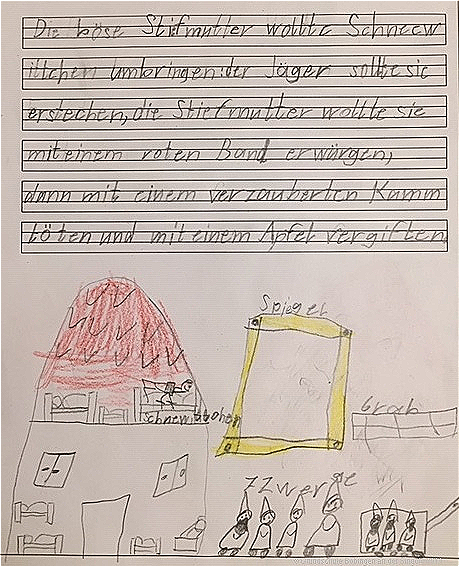 Die böse Stiefmutter wollte Schneew
ittchen umbringen: der Jäger sollte sie
erstechen, die Stiefmutter wollte sie
mit einem roten Band erwürgen,
dann mit einem verzauberten Kamm
töten und mit einem Apfel vergiften
Spiegel
Grab
7 Zwerge